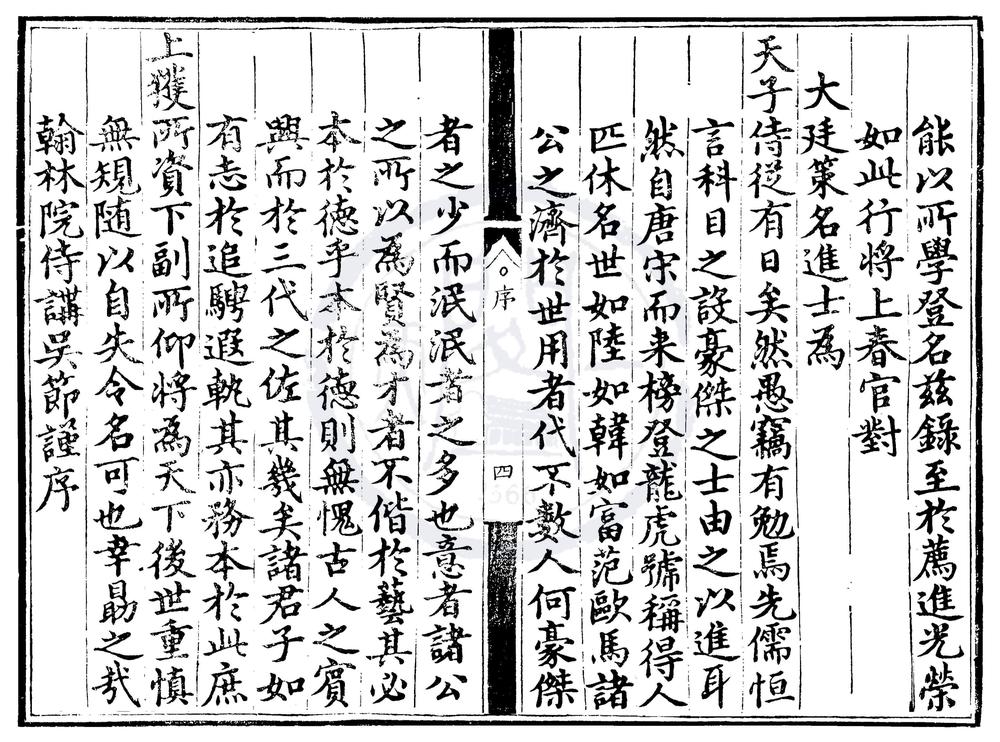 能以所學登名茲錄至於薦進光榮
如此行將上春官對
大廷策名進士為
天子侍從有日矣然愚竊有勉焉先儒恒
言科目之設豪傑之士由之以進耳
然自唐宋而来榜登龍虎號稱得人
匹休名世如陸如韓如富范歐馬諸
公之濟於世用者代不數人何豪傑
序
四
者之少而泯泯者之多也意者諸公
之所以為賢為才者不偕於藝其必
本於德乎本於德則無愧古人之賓
興而於三代之佐其幾矣諸君子如
有志於追騁遐軌其亦務本於此庶
上獲所資下副所仰將為天下後世重慎
無規随以自失令名可也幸勗之哉
翰林院侍講吴節謹序